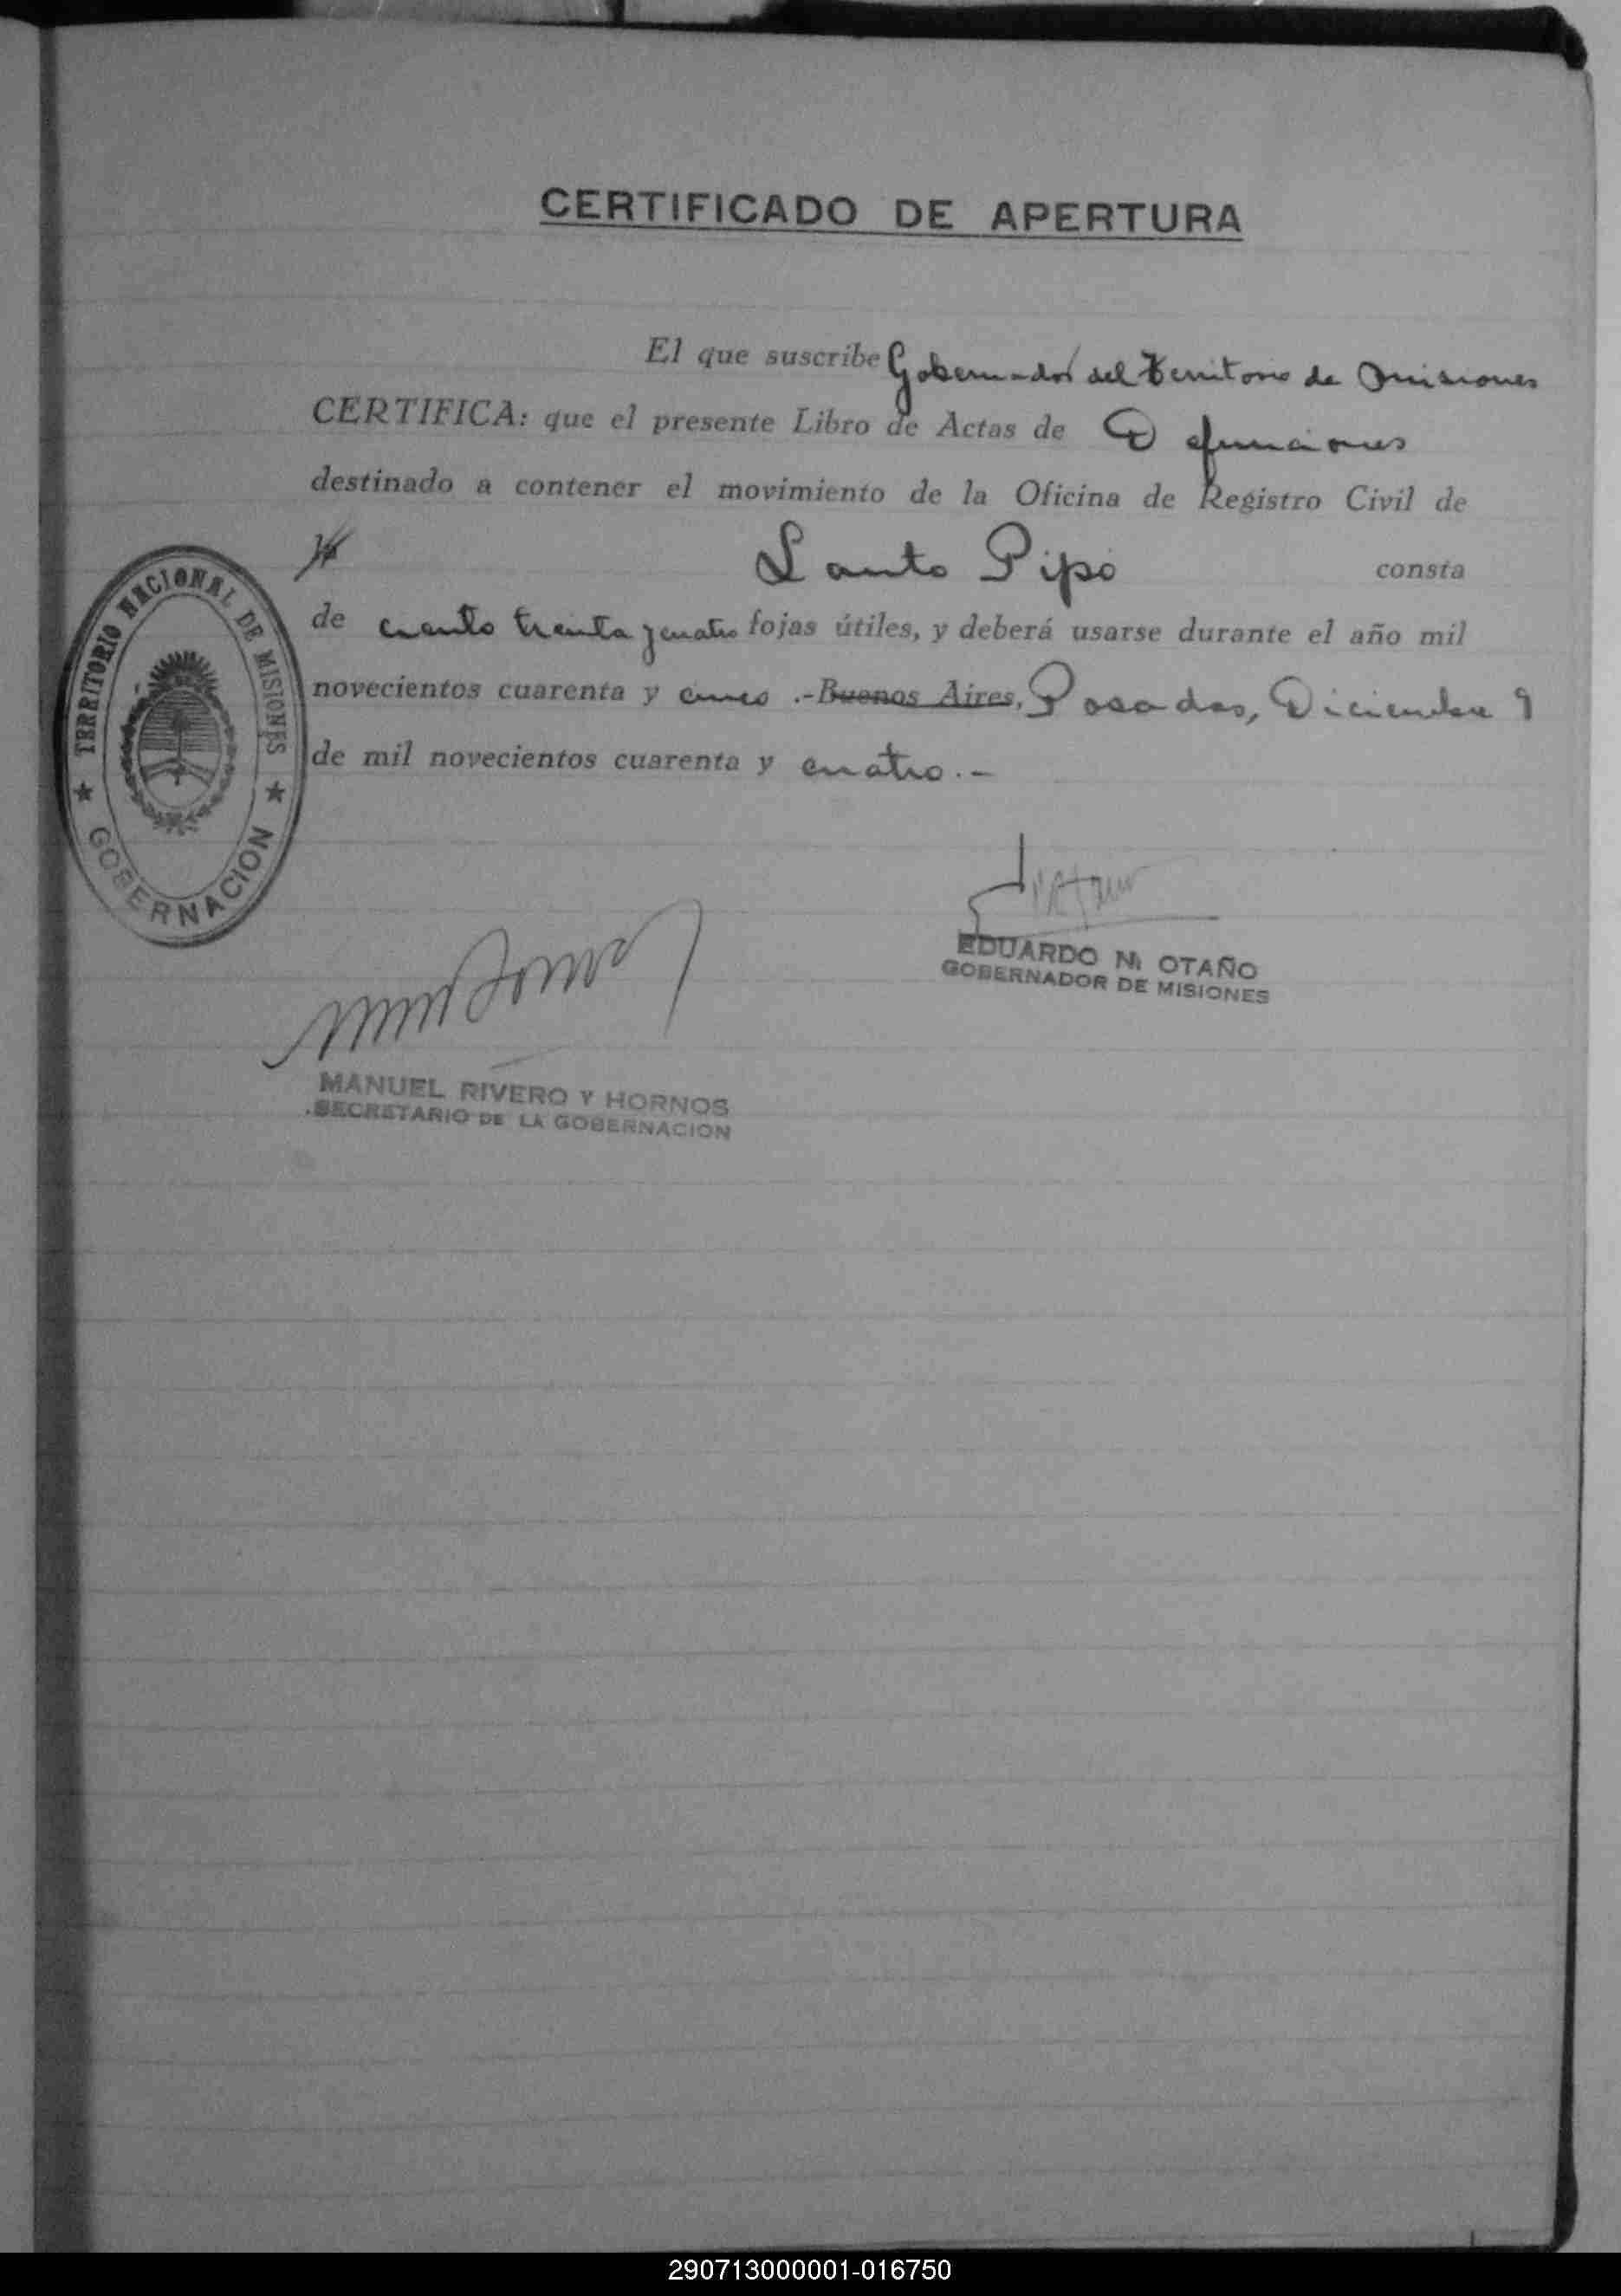 CERTIFICADO DE APERTURA
El que suscribe Gobernador del Territorio de Misiones
CERTIFICA: que el presente Libro de Actas de Defunciones
destinado a contener el movimiento de la Oficina de Registro Civil de
Santo Pipó consta
de ciento treinta y cuatro fojas útiles, y deberá usarse durante el año mil
novecientos cuarenta y cinco .- Buenos Aires, Posadas, Diciembre 9
de mil novecientos cuarenta y cuatro.-
TERRITORIO NACIONAL DE MISIONES
★ GOBERNACION ★
EDUARDO N. OTAÑO
GOBERNADOR DE MISIONES
MANUEL RIVERO Y HORNOS
SECRETARIO DE LA GOBERNACION
290713000001-016750